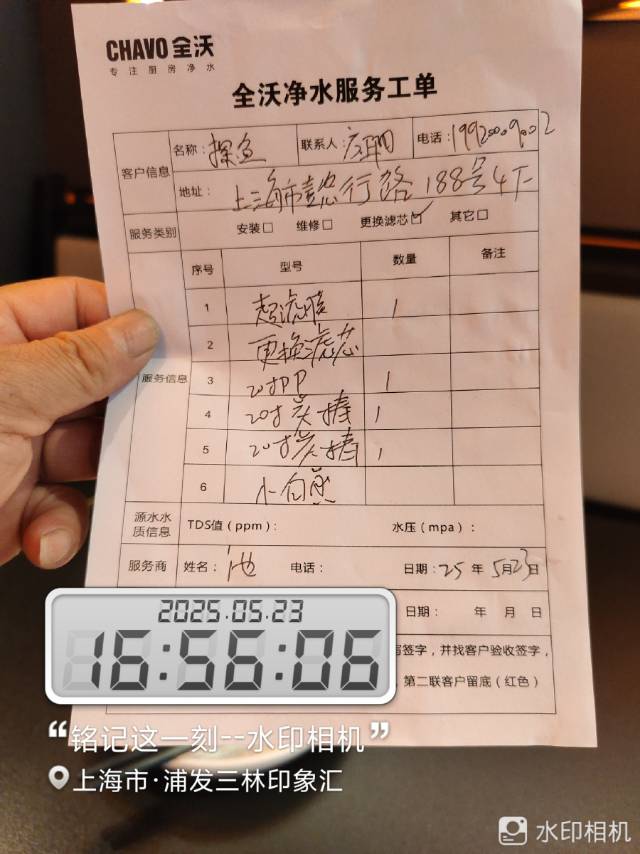 CHAVO 全沃
专注厨房净水
全沃净水服务工单
客户信息
名称：探鱼 联系人： 电话：19920009002
地址：上海市懿行路188号4F
服务类别 安装□ 维修□ 更换滤芯☑ 其它□
服务信息
序号 型号 数量 备注
1 超滤膜 1
2 更换滤芯
3 20寸PP 1
4 20寸炭棒 1
5 20寸炭棒 1
6
源水水质信息 TDS值（ppm）： 水压（mpa）：
服务商 姓名：池 电话： 日期：25年5月23日
日期： 年 月 日
签字，并找客户验收签字，
第二联客户留底（红色）
2025.05.23
16:56:06
“铭记这一刻--水印相机”
上海市·浦发三林印象汇
水印相机